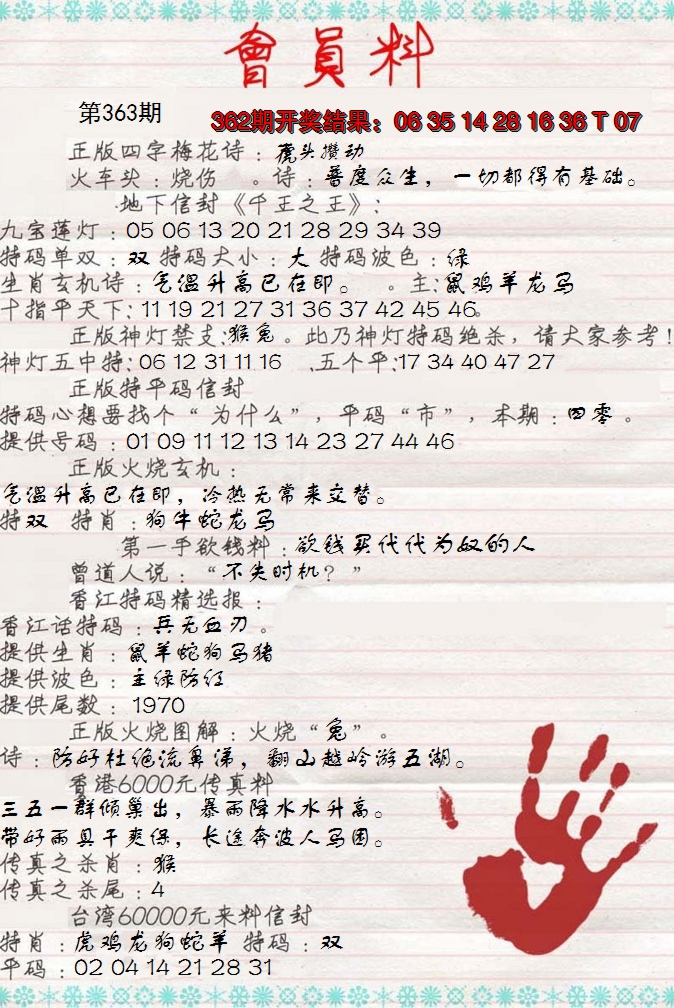 會員料
第363期
362期开奖结果：06 35 14 28 16 36 T 07
正版四字梅花诗：虎头攒动
火车头：烧伤 。诗：普度众生，一切都得有基础。
地下信封《千王之王》：
九宝莲灯：05 06 13 20 21 28 29 34 39
特码单双：双 特码大小：大 特码波色：绿
生肖玄机诗：气温升高已在即。 。主：鼠鸡羊龙马
十指平天下：11 19 21 27 31 36 37 42 45 46。
正版神灯禁支：猴兔。此乃神灯特码绝杀，请大家参考！
神灯五中特：06 12 31 11.16 .五个平：17 34 40 47 27
正版特平码信封
特码心想要找个“为什么”，平码“市”，本期：四零。
提供号码：01 09 11 12 13 14 23 27 44 46
正版火烧玄机：
气温升高已在即，冷热无常来交替。
特双 特肖：狗牛蛇龙马
第一手欲钱料：欲钱买代代为奴的人
曾道人说：“不失时机？”
香江特码精选报：
香江话特码：兵无血刃。
提供生肖：鼠羊蛇狗马猪
提供波色：主绿防红
提供尾数：1970
正版火烧图解：火烧“兔”。
诗：防好杜绝流鼻涕，翻山越岭游五湖。
香港6000元传真料
三五一群倾巢出，暴雨降水水升高。
带好雨具干爽保，长途奔波人马困。
传真之杀肖：猴
传真之杀尾：4
台湾60000元来料信封
特肖：虎鸡龙狗蛇羊 特码：双
平码：02 04 14 21 28 31